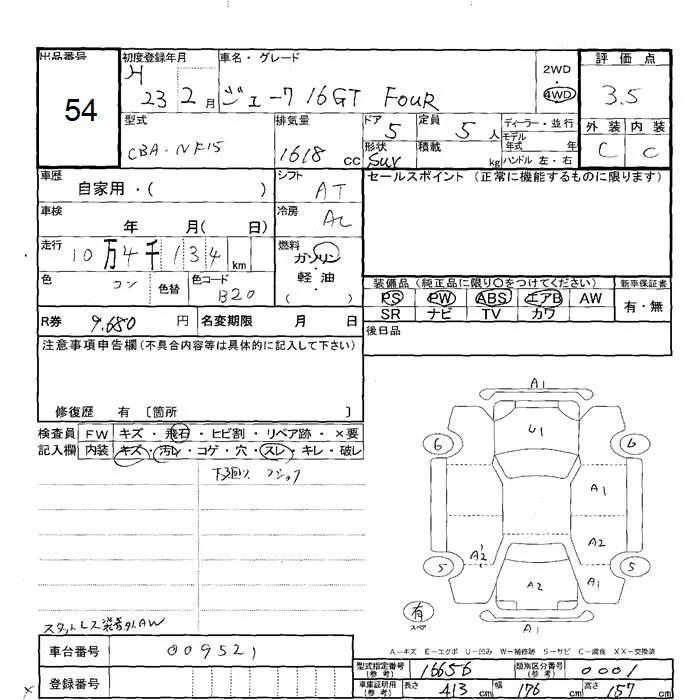 出品番号
54
初度登録年月
H 23 2 月
車名・グレード
ジューク 16GT FOUR
2WD
4WD
評価点
3.5
外装 内装
C C
型式
CBA-NF15
排気量
1618 cc
ドア
5
定員
5 人
ディーラー・並行
モデル年式 年
形状
SUV
積載
kg
ハンドル 左・右
車歴
自家用・( )
シフト
AT
セールスポイント (正常に機能するものに限ります)
車検
年 月( 日)
冷房
AC
走行
10万4千134 km
燃料
ガソリン・軽油
( )
色
コン
色替
色コード
B20
装備品 (純正品に限り〇をつけてください)
PS PW ABS エアB AW
SR ナビ TV カワ
新車保証書
有・無
R券 9.680 円
名変期限 月 日
後日品
注意事項申告欄 (不具合内容等は具体的に記入して下さい)
修復歴 有 〔箇所 〕
検査員 FW キズ・飛石・ヒビ割・リペア跡・×要
記入欄 内装 キズ・汚レ・コゲ・穴・スレ・キレ・破レ
下回り
A1
U1
6 6
A1
A2 A2
5 5
A2 A1
A1
有
スペア
スタットレス装着外AW
A-キズ E-エクボ U-凹み W-補修跡 S-サビ C-腐食 XX-交換済
車台番号 009521
登録番号
型式指定番号(参考) 16656
類別区分番号(参考) 0001
車庫証明用(参考) 長さ 413 cm 幅 176 cm 高さ 157 cm